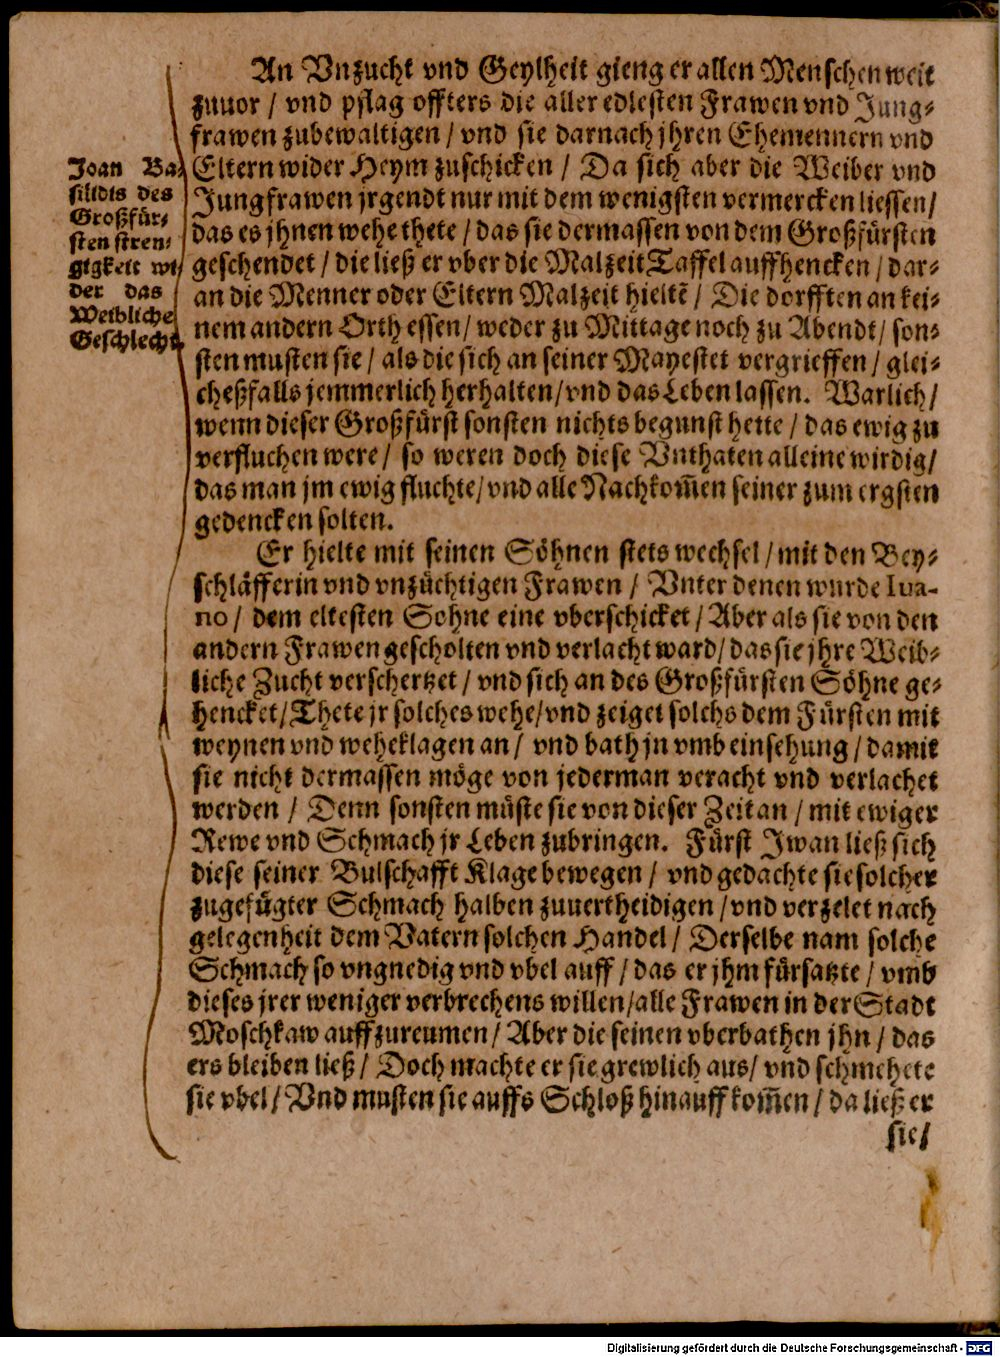 An Vnzucht vnd Geylheit gieng er allen Menschen weit
zuuor / vnd pflag offters die aller edlesten Frawen vnd Jung-
frawen zubewaltigen / vnd sie darnach jhren Ehemennern vnd
Eltern wider Heym zuschicken / Da sich aber die Weiber vnd
Jungfrawen jrgendt nur mit dem wenigsten vermercken liessen /
das es jhnen wehe thete / das sie dermassen von dem Großfürsten
geschendet / die ließ er vber die Malzeit Taffel auffhencken / dar-
an die Menner oder Eltern Malzeit hieltẽ / Die dorfften an kei-
nem andern Orth essen / weder zu Mittage noch zu Abendt / son-
sten musten sie / als die sich an seiner Mayestet vergrieffen / glei-
cheßfalls jemmerlich herhalten / vnd das Leben lassen. Warlich /
wenn dieser Großfürst sonsten nichts begunst hette / das ewig zu
verfluchen were / so weren doch diese Vnthaten alleine wirdig /
das man jm ewig fluchte / vnd alle Nachkom̃en seiner zum ergsten
gedencken solten.
Joan Ba-
silidis des
Großfür-
sten stren-
gigkeit wi-
der das
Weibliche
Geschlecht.
Er hielte mit seinen Söhnen stets wechsel / mit den Bey-
schläfferin vnd vnzüchtigen Frawen / Vnter denen wurde Iua-
no / dem eltesten Sohne eine vberschicket / Aber als sie von den
andern Frawen gescholten vnd verlacht ward / das sie jhre Weib-
liche Zucht verschertzet / vnd sich an des Großfürsten Söhne ge-
hencket / Thete jr solches wehe / vnd zeiget solchs dem Fürsten mit
weynen vnd weheklagen an / vnd bath jn vmb einsehung / damit
sie nicht dermassen möge von jederman veracht vnd verlachet
werden / Denn sonsten müste sie von dieser Zeit an / mit ewiger
Rewe vnd Schmach jr Leben zubringen. Fürst Jwan ließ sich
diese seiner Bulschafft Klage bewegen / vnd gedachte sie solcher
zugefügter Schmach halben zuuertheidigen / vnd verzelet nach
gelegenheit dem Vatern solchen Handel / Derselbe nam solche
Schmach so vngnedig vnd vbel auff / das er jhm fürsatzte / vmb
dieses jrer weniger verbrechens willen / alle Frawen in der Stadt
Moschkaw auffzureumen / Aber die seinen vberbathen jhn / das
ers bleiben ließ / Doch machte er sie grewlich aus / vnd schmehete
sie vbel / Vnd musten sie auffs Schloß hinauff kom̃en / da ließ er
sie /
Digitalisierung gefördert durch die Deutsche Forschungsgemeinschaft - DFG